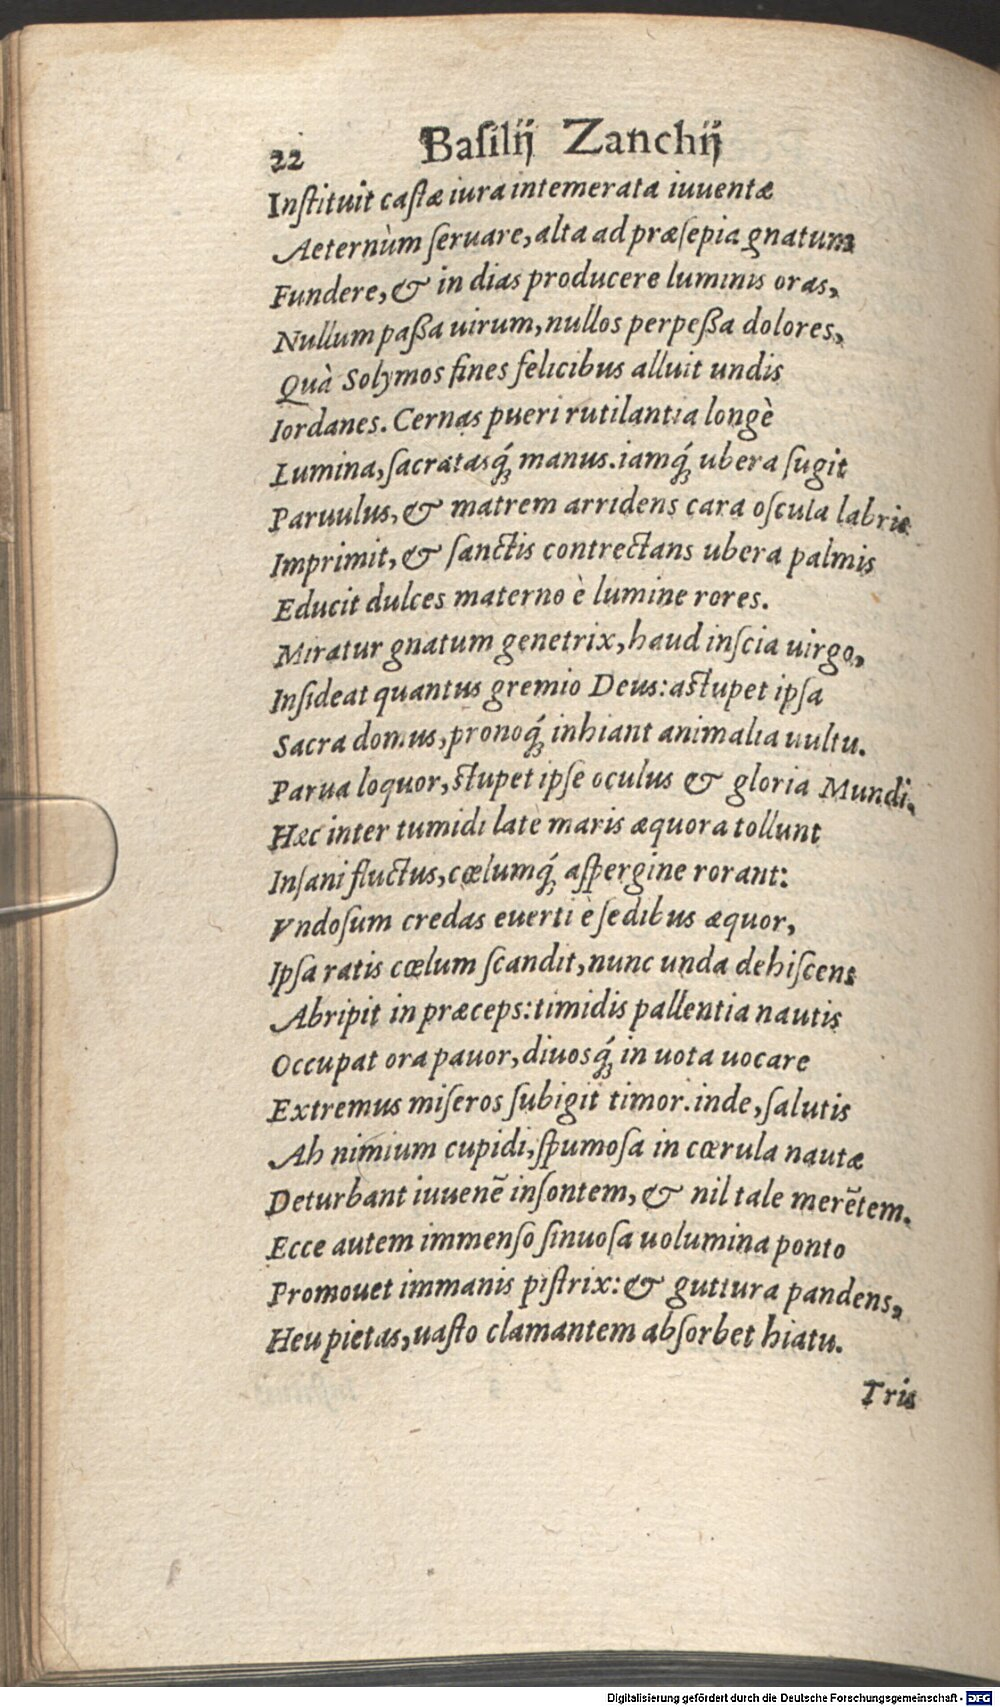 22 Baſilij Zanchij
Inſtituit caſtæ iura intemerata iuuentæ
Aeternùm ſeruare, alta ad præſepia gnatum
Fundere, & in dias producere luminis oras,
Nullum paßa uirum, nullos perpeßa dolores,
Quà Solymos fines felicibus alluit undis
Iordanes. Cernas pueri rutilantia longè
Lumina, ſacratasq́; manus. iamq́; ubera ſugit
Paruulus, & matrem arridens cara oſcula labris
Imprimit, & ſanctis contrectans ubera palmis
Educit dulces materno è lumine rores.
Miratur gnatum genetrix, haud inſcia uirgo,
Inſideat quantus gremio Deus: aſtupet ipſa
Sacra domus, pronoq́; inhiant animalia uultu.
Parua loquor, ſtupet ipſe oculus & gloria Mundi.
Hæc inter tumidi latè maris æquora tollunt
Inſani fluctus, cœlumq́; aſpergine rorant:
Vndoſum credas euerti è ſedibus æquor,
Ipſa ratis cœlum ſcandit, nunc unda dehiſcens
Abripit in præceps: timidis pallentia nautis
Occupat ora pauor, diuosq́; in uota uocare
Extremus miſeros ſubigit timor. inde, ſalutis
Ah nimium cupidi, ſpumoſa in cœrula nautæ
Deturbant iuuenẽ inſontem, & nil tale merẽtem.
Ecce autem immenſo ſinuoſa uolumina ponto
Promouet immanis piſtrix: & guttura pandens,
Heu pietas, uaſto clamantem abſorbet hiatu.
Tris
Digitalisierung gefördert durch die Deutsche Forschungsgemeinschaft - DFG